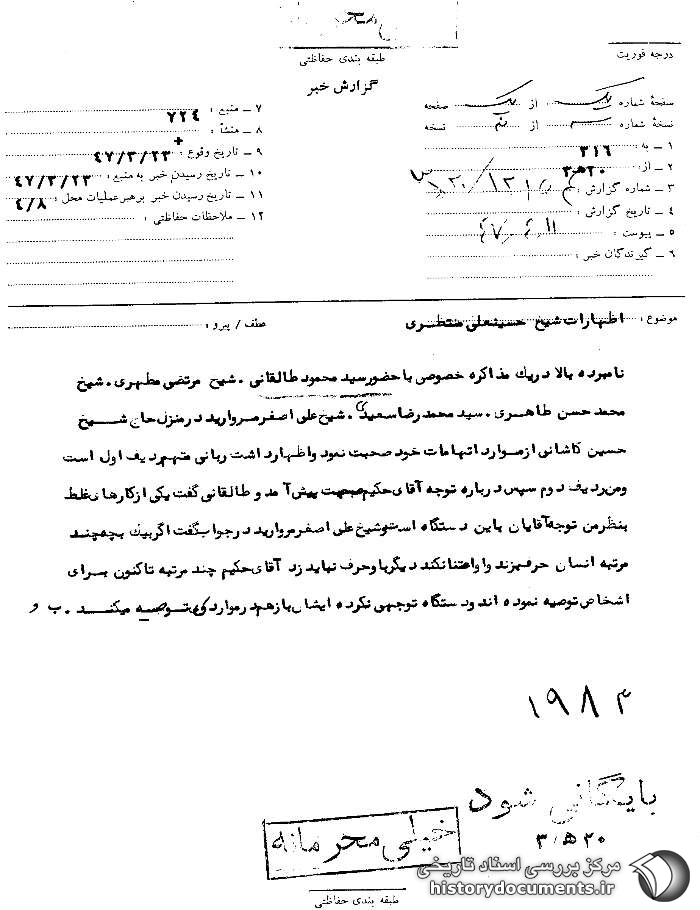 طبقه بندی حفاظتی
درجه فوریت
گزارش خبر
صفحهٔ شماره یک از یک صفحه
نسخهٔ شماره از نسخه
۱ ـ به ۳۱۶
۲ ـ از: ۲۰ھ۳
۳ ـ شماره گزارش :
۴ ـ تاریخ گزارش :
۵ ـ پیوست :
۶ ـ گیرندگان خبر :
۷ ـ منبع : ۷۲۴
۸ ـ منشأ :
۹ ـ تاریخ وقوع : ۴۷/۳/۲۳
۱۰ ـ تاریخ رسیدن خبر به منبع : ۴۷/۳/۲۳
۱۱ ـ تاریخ رسیدن خبر برهبر عملیات محل : ۴/۸
۱۲ ـ ملاحظات حفاظتی :
موضوع : اظهارات شیخ حسینعلی منتظری
عطف / پیرو :
نامبرده بالا دریک مذاکره خصوصی با حضور سید محمود طالقانی . شیخ مرتضی مطهری . شیخ
محمد حسن طاهری . سید محمد رضا سعیدی . شیخ علی اصغر مروارید در منزل حاج شیخ
حسین کاشانی از موارد اتهامات خود صحبت نمود و اظهار داشت ربانی متهم ردیف اول است
ومن ردیف دوم سپس درباره توجه آقای حکیم صحبت پیش آمد و طالقانی گفت یکی از کارهای غلط
بنظر من توجه آقایان باین دستگاه است و شیخ علی اصغر مروارید در جواب گفت اگر بیک بچه چند
مرتبه انسان حرف بزند و او اعتنا نکند دیگر با و حرف نباید زد آقای حکیم چند مرتبه تاکنون برای
اشخاص توصیه نموده اند و دستگاه توجهی نکرده ایشان باز هم در موارد توصیه میکند . ب و
۱۹۸۴
بایگانی شود
۲۰ ھ ۳
خیلی محرمانه
طبقه بندی حفاظتی
مرکز بررسی اسناد تاریخی
historydocuments.ir